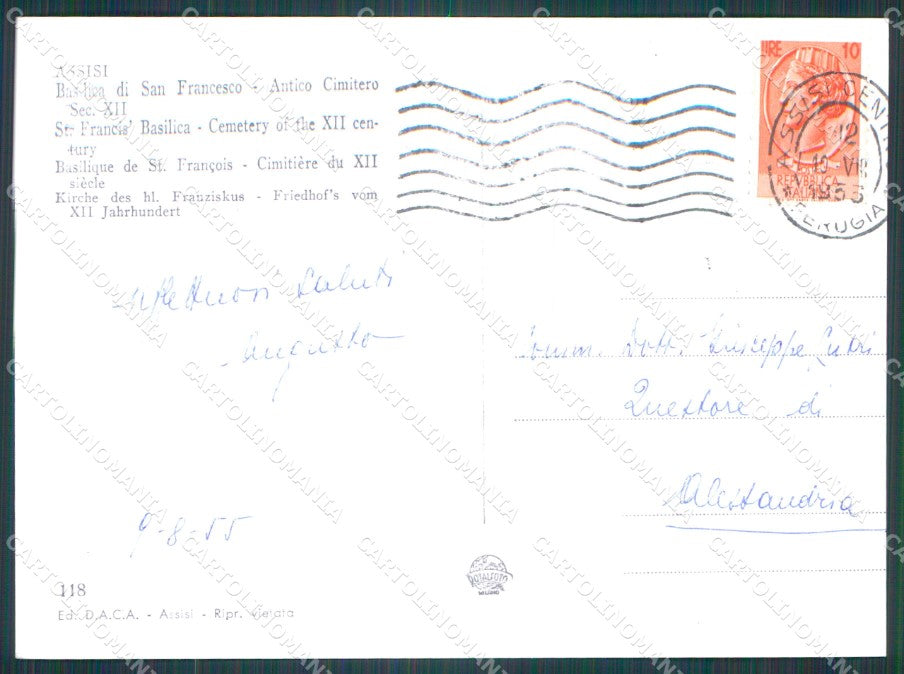 ASSISI
Basilica di San Francesco - Antico Cimitero
Sec. XII
St. Francis' Basilica - Cemetery of the XII cen-
tury
Basilique de St. François - Cimitière du XII
siècle
Kirche des hl. Franziskus - Friedhof's vom
XII Jahrhundert
LIRE 10
REPVBBLICA
ITALIANA
ASSISI CENTRO
12
10 VIII
1955
PERUGIA
Affettuosi saluti
Augusto
Comm. Dott. Giuseppe
Questore di
Alessandria
9-8-55
ROTALFOTO
MILANO
118
Ed. D.A.C.A. - Assisi - Ripr. vietata
CARTOLINOMANIA